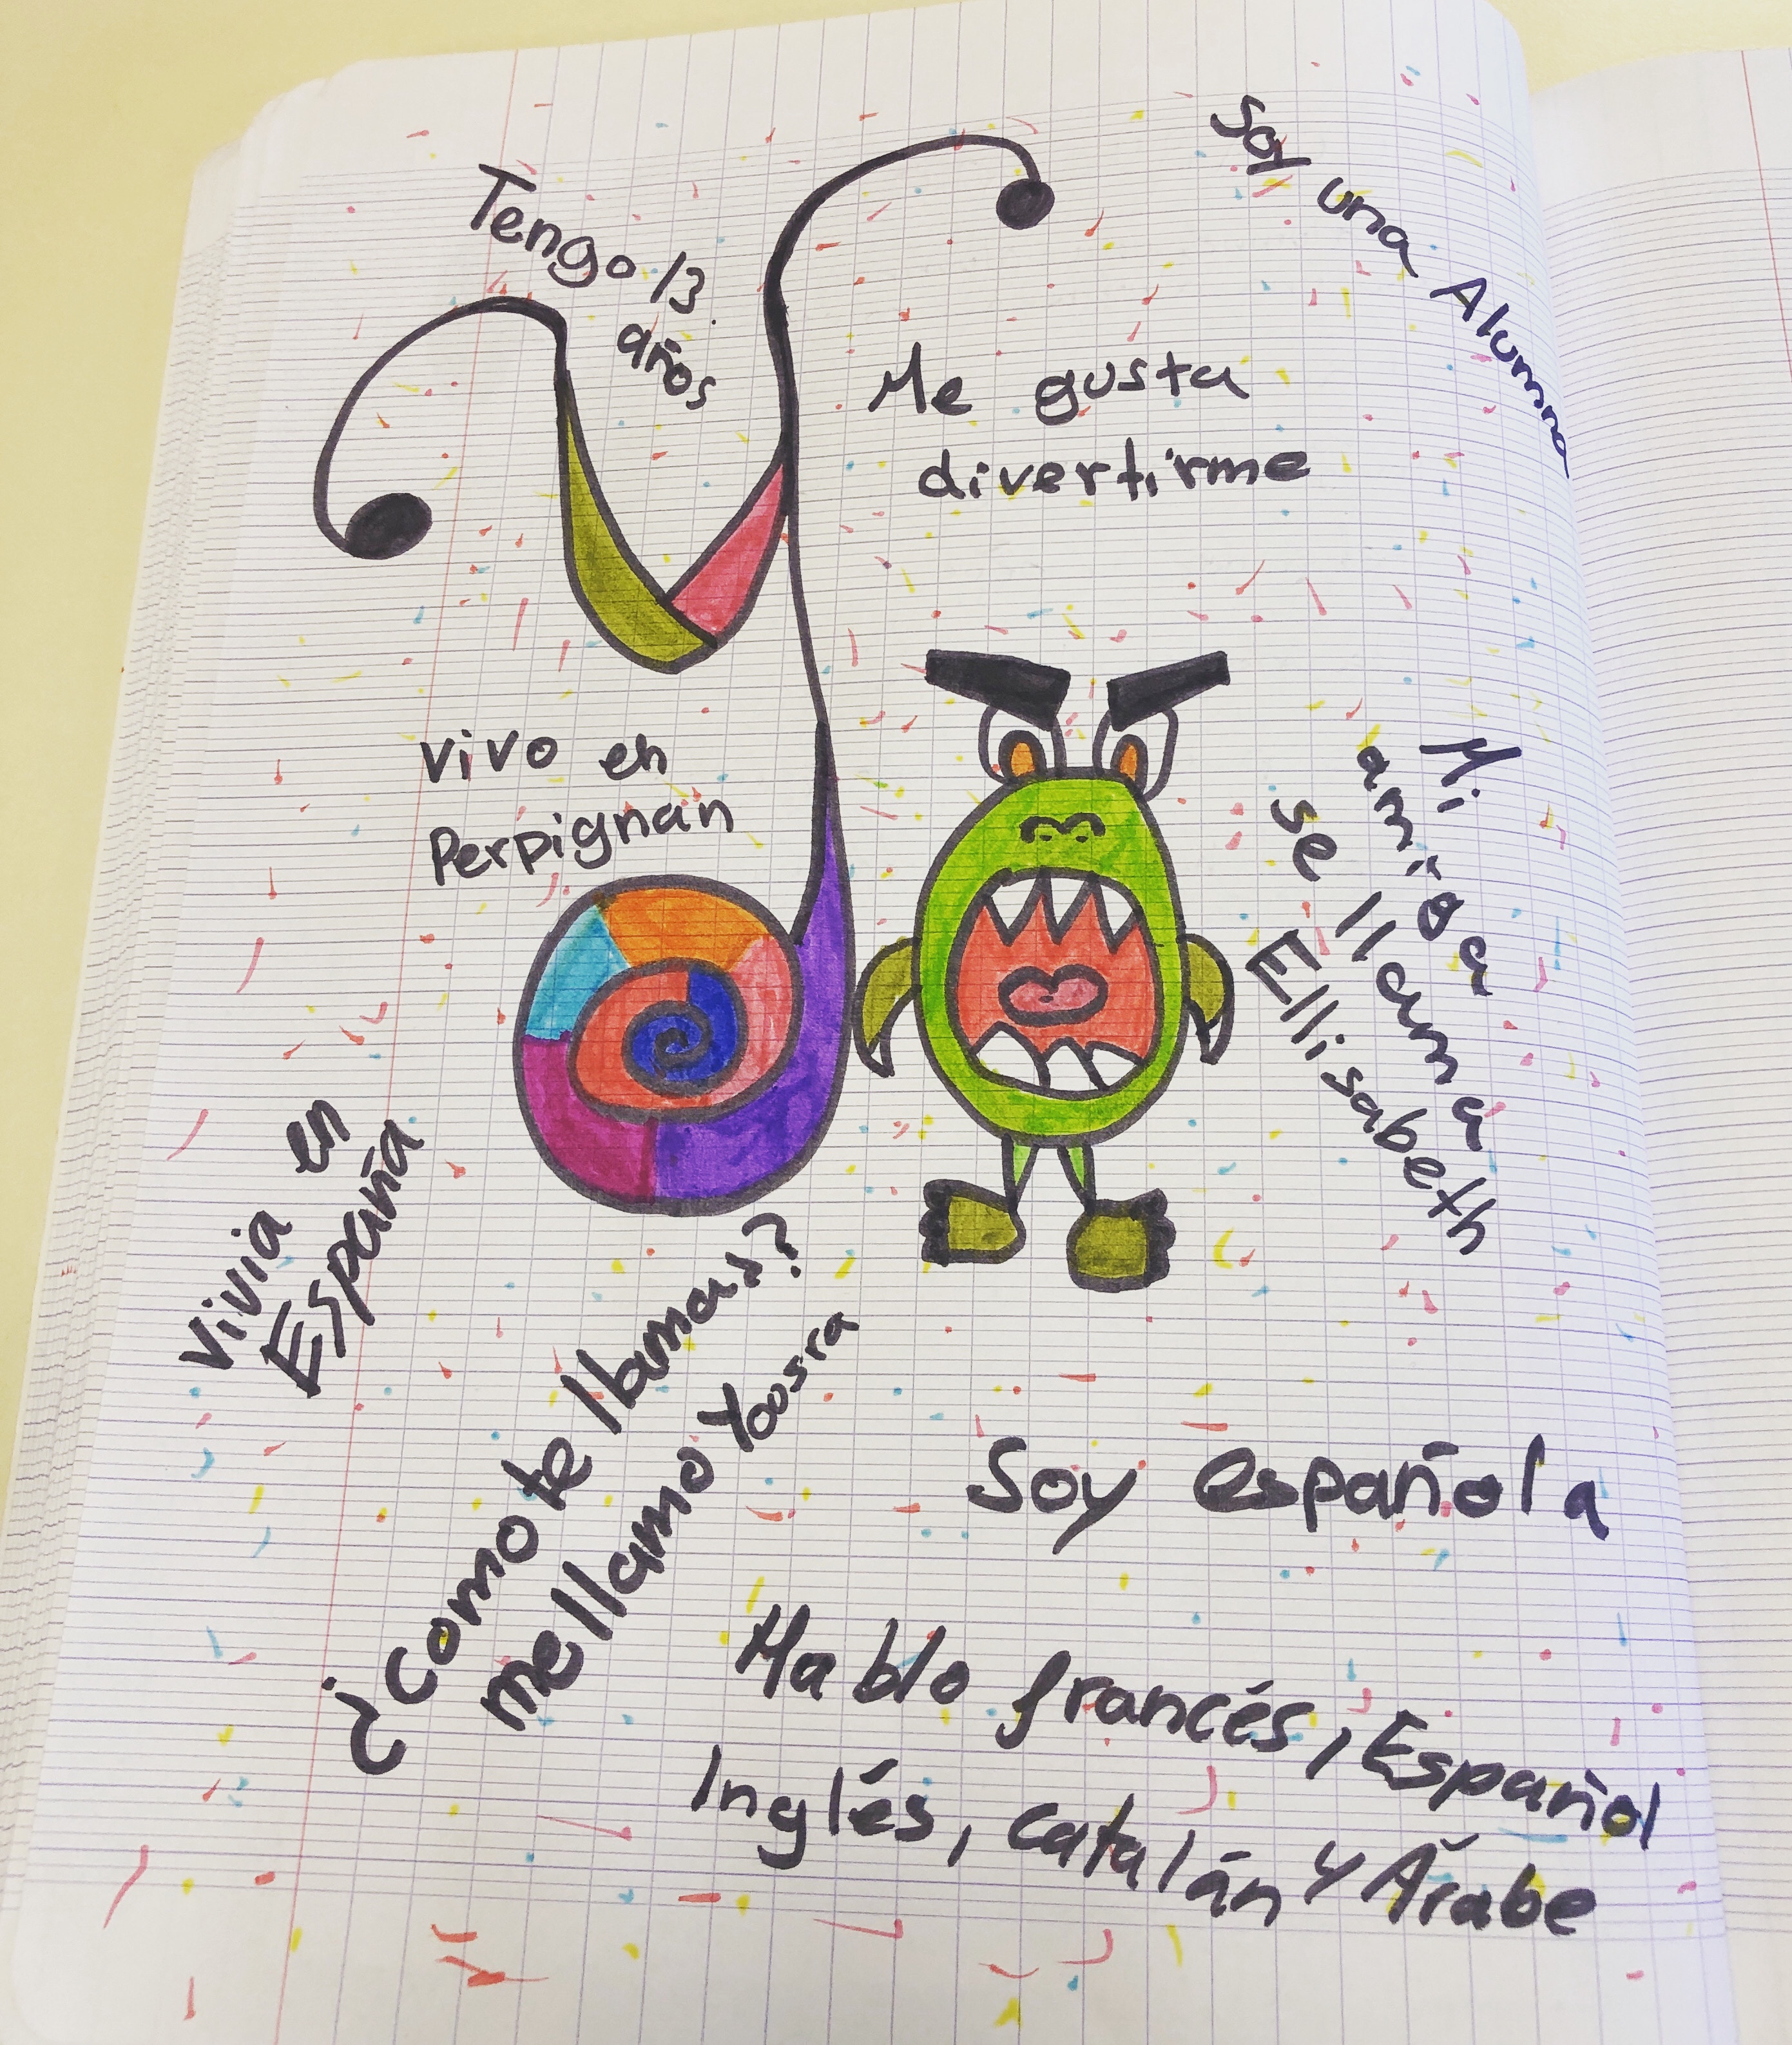 Soy una Alumna
Tengo 13
años
Me gusta
divertirme
vivo en
Perpignan
Mi
amiga
se llama
Ellisabeth
vivia en
España
¿como te llamas?
me llamo Yousra
Soy española
Hablo francés, Español
Inglés, catalán y Árabe